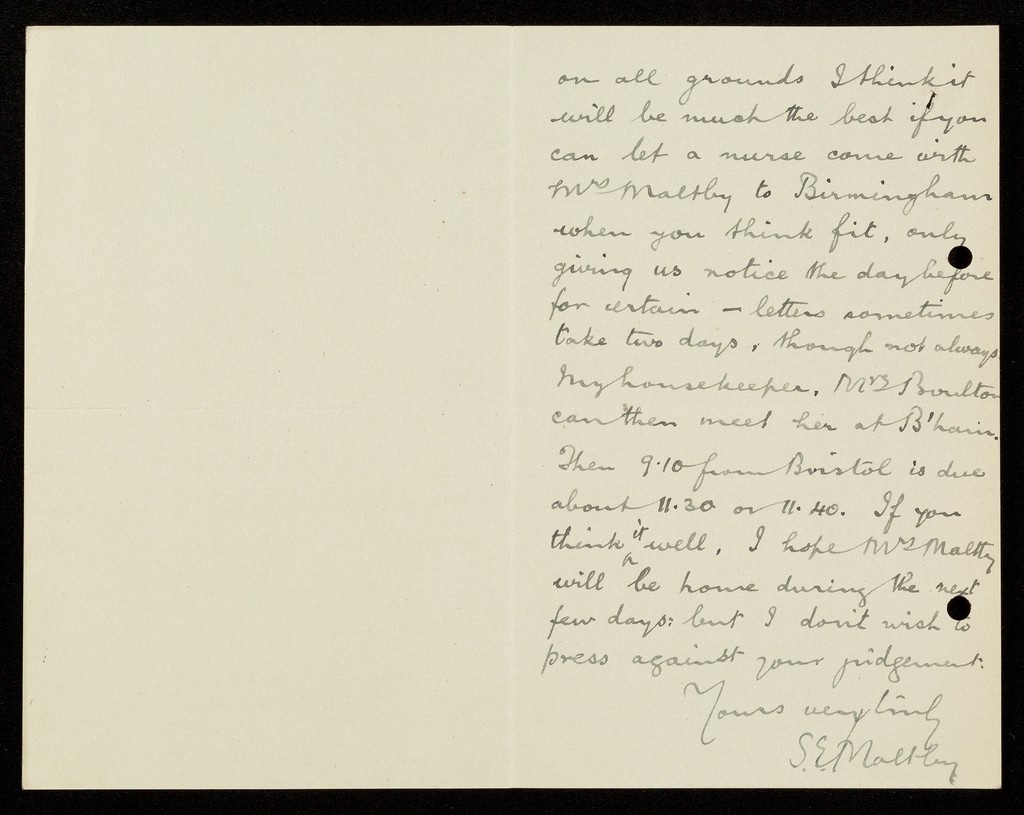 on all grounds I think it
will be much the best if you
can let a nurse come with
Mrs Maltby to Birmingham
when you think fit, only
giving us notice the day before
for certain - letters sometimes
take two days, though not always
My housekeeper, Mrs Boulton
can then meet her at B'ham.
Then 9.10 from Bristol is due
about 11.30 or 11.40. If you
think it well, I hope Mrs Maltby
will be home during the next
few days: but I don't wish to
press against your judgement.
Yours very truly
S.E. Maltby